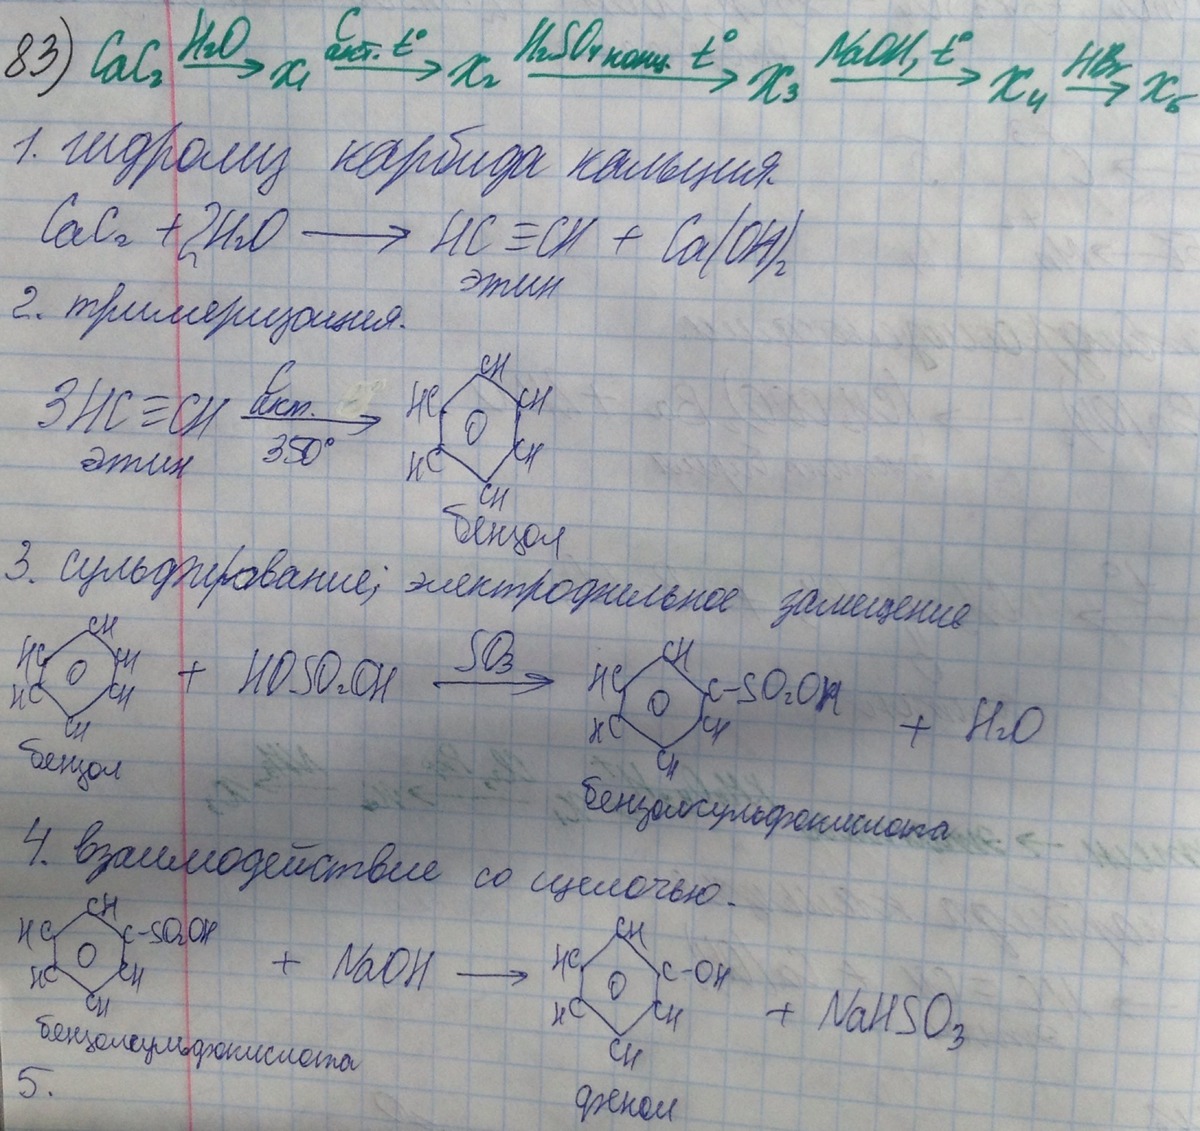 83) CaC₂ H₂O → X₁ C акт. t° → X₂ H₂SO₄ конц. t° → X₃ NaOH, t° → X₄ HBr → X₅
1. гидролиз карбида кальция.
CaC₂ + 2H₂O → HC≡CH + Ca(OH)₂
этин
2. тримеризация.
3HC≡CH C акт. 350° → HC CH CH HC CH CH
этин
бензол
3. сульфирование; электрофильное замещение
HC CH CH HC CH CH + HOSO₂OH SO₃ → HC CH C-SO₂OH HC CH CH + H₂O
бензол
бензолсульфокислота
4. взаимодействие со щелочью.
HC CH C-SO₂OH HC CH CH + NaOH → HC CH C-OH HC CH CH + NaHSO₃
бензолсульфокислота
фенол
5.